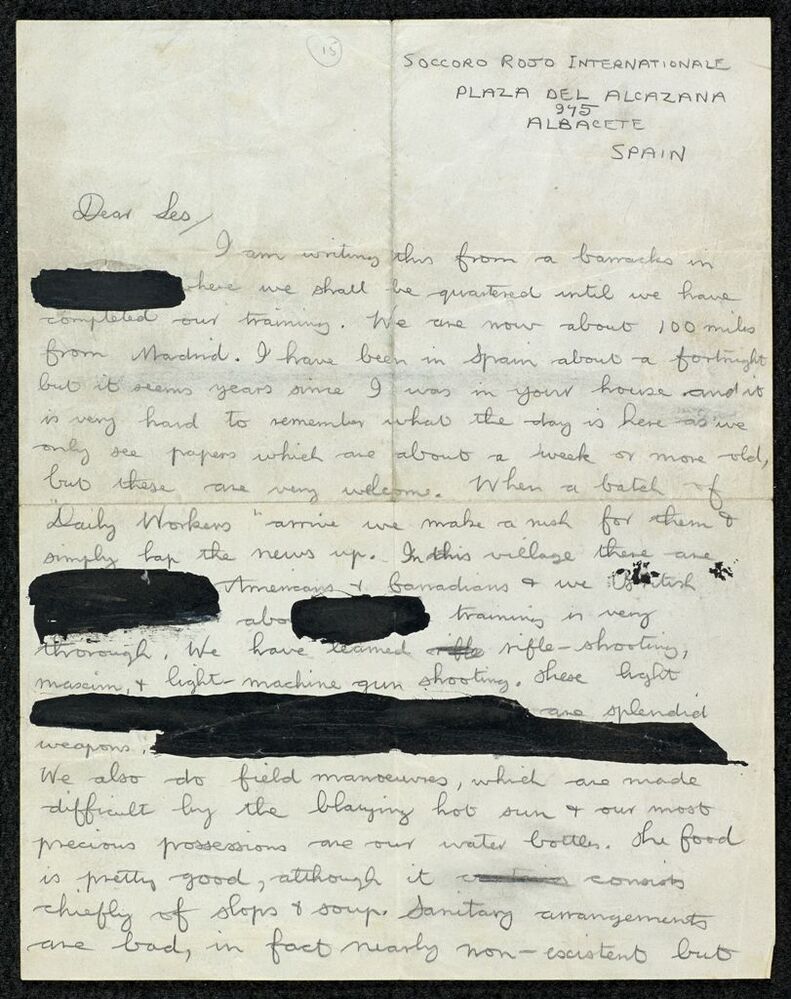 15
SOCCORO ROJO INTERNATIONALE
PLAZA DEL ALCAZANA
945
ALBACETE
SPAIN
Dear Les/
I am writing this from a barracks in
here we shall be quartered until we have
completed our training. We are now about 100 miles
from Madrid. I have been in Spain about a fortnight
but it seems years since I was in your house and it
is very hard to remember what the day is here as we
only see papers which are about a week or more old,
but these are very welcome. When a batch of
"Daily Workers" arrive we make a rush for them &
simply lap the news up. In this village there are
Americans & Canadians & we British
abou training is very
thorough. We have learned rifle-shooting,
maxim, & light-machine gun shooting. These light
are splendid
weapons.
We also do field manoeuvres, which are made
difficult by the blazing hot sun & our most
precious possessions are our water bottles. The food
is pretty good, although it consists
chiefly of slops & soup. Sanitary arrangements
are bad, in fact nearly non-existent but